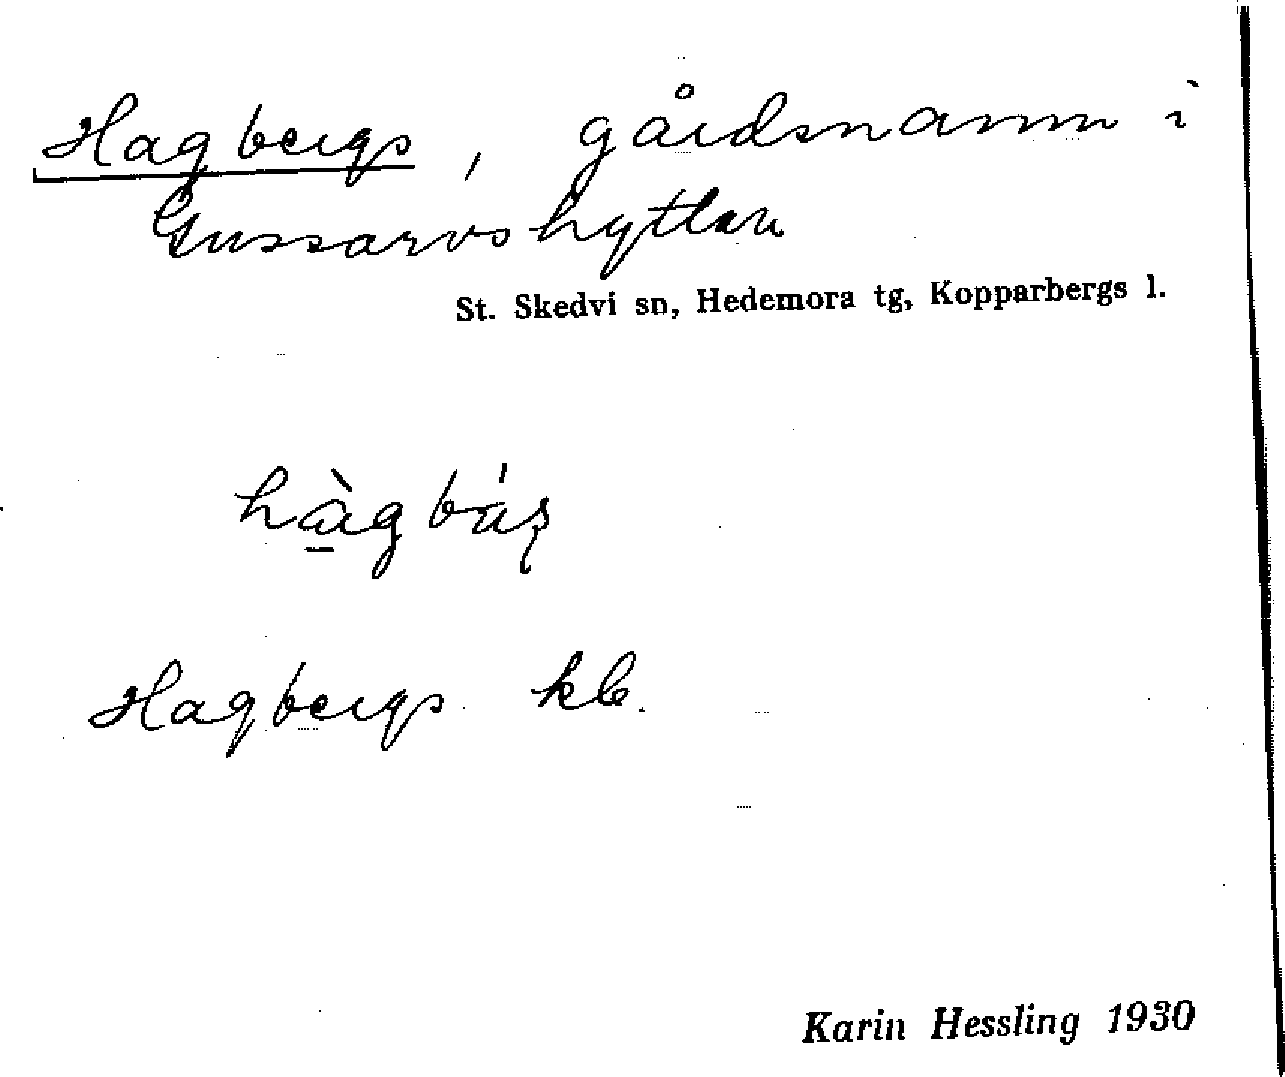 Hagbergs, gårdsnamn i
Gussarvshyttan
St. Skedvi sn, Hedemora tg, Kopparbergs l.
Hagbergs kb.
Karin Hessling 1930